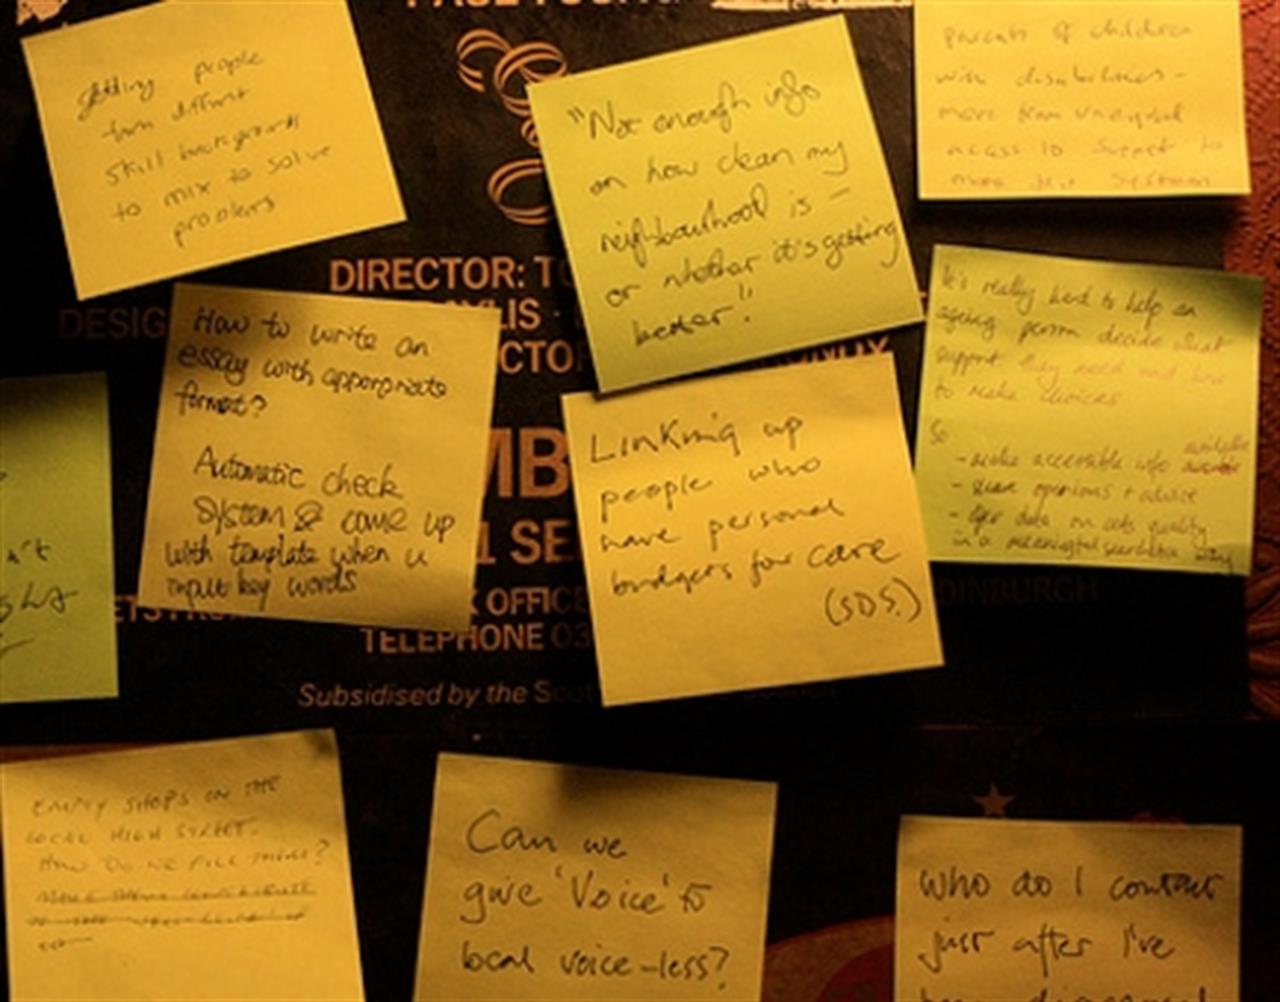 getting people
from different
skill backgrounds
to mix to solve
problems
"Not enough info
on how clean my
neighbourhood is –
or whether it's getting
better".
parents of children
with disabilities –
more than unequal
access to support to
DIRECTOR:
DESIG
How to write an
essay with appropriate
format?
Automatic check
system & come up
with template when u
input key words
Linking up
people who
have personal
budgets for care
(SDS.)
It's really hard to help an
ageing person decide what
support they need and how
to make choices
So
- make accessible info available
- share opinions + advice
- offer data on
in a meaningful searchable way
MB
1 SE
OFFICE
TELEPHONE 03
EDINBURGH
Subsidised by the Scot
EMPTY SHOPS ON THE
LOCAL HIGH STREET.
HOW DO WE FILL THEM?
Can we
give 'Voice' to
local voice-less?
Who do I contact
just after I've
been diagnosed